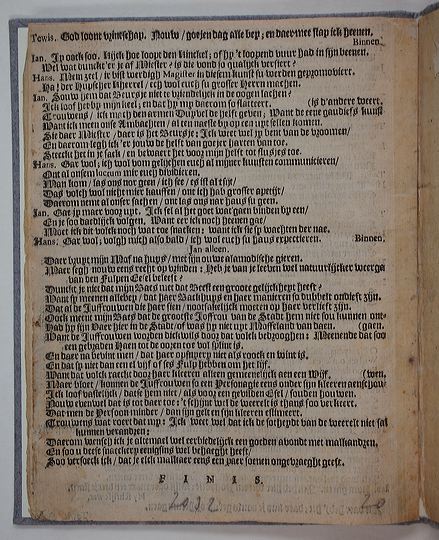 Tewis. God loont vrintschap. Nouw / goejen dag alle bey; en daermet stap ick heenen.
Binnen.
Jan. Jy oock soo. Kijck hoe loopt den Kinckel; of hy 't loopend vuur had in sijn beenen.
Wel wat dunckt'er je af Miester? is die vond so qualijck versiert?
Hans. Mein zeel / ir bist werdigh Magister in diesem kunst su werden gepromoviert.
Ha! der Hupscher Kherrel / ich wol euch su groser Herrn machen.
Jan. Souw jem dat Beursje niet te vriendelijck in de oogen lachen?
Ick loof het by mijn keel; en dat hy mp daerom so flatteert. (is d'andere weert.
Trouwens / ick mach den armen Duyvel de helft geven; Want de eene gaudiefs kunst
Want ick meen onse Ambachten / al ten naeste by op een upt sellen komen.
Sie daer Miester / daer is het Beursje: Ick weet wel jy bent van de vroomen /
En daerom legh ick 'er jouw de helft van goejer harten van toe.
Steeckt het in je sack / en bewaert het voor mijn helft tot flusjes toe.
Hans. Gar wol; ich wol vom gelijchen euch al mijner kunsten communicieren /
Ont al onsem lucrum mit euch dividieren.
Man kom / las ons nor geen / ich see / es ist al tijt /
Das volch wol nicht mier kauffen / ont ich hab grosser apetijt /
Daerom nemt al onser sachen / ont las ons nar haus su geen.
Jan. Gae jy maer voor upt. Ick sel al het goet wat gaen binden by een /
En je soo daedlijck volgen. Want eer ick noch heenen gae /
Moet ick dit volck noch wat toe snacken: want ick sie sy wachten der nae.
Hans. Gar wol; volgh mich also bald / ich wol euch su haus expectieren. Binnen.
Jan alleen.
Daer kuyt mijn Mof na huys / met sijn ouwe alamodische gieren.
Maer segh nouw eens recht op vrinden: Heb je van je leeven wel natuurlijcker weerga
van den Fulpen Esel beleeft?
Dunckt je niet dat mijn Baes met dat Beest een groote gelijckheyt heeft?
Want sy meenen alle bey / dat haer Backhuys en haer manieren so dubbelt ondieft zijn.
Dat al de Juffrouwen die haer sien / nootsakelijck moeten op haer verlieft zijn.
Oock meent mijn Baes dat de grootste Joffrou van de Stadt hem niet sou kunnen ont-
Had hy sijn Vaer hier in de Stadt / of was hy niet upt Moffeland van daen. (gaen.
Want de Juffrouwen worden dickwils door dat volck bedrooghen: Meenende dat soo
een gebraden Haen tot de ooren toe vol splint is.
En daer na bevint men / dat haer opsnyery niet als roock en wint is.
En dat sy niet dan een el vijf of ses Fulp hebben om het lijf.
Want dat volck wacht door haer kleeren alleen gemeenelijck aen een Wijf. (wen,
Maer vloet / konnen de Juffrouwen so een Personagie eens onder sijn kleeren aenschou-
Ick loof vastelijck / datse jem niet / als voor een gevilden Esel / souden houwen.
Nouw vrienden dat is tot daer toe: 't schijnt wel de weerelt is thans soo verkeert.
Dat men de Persoon minder / dan sijn gelt en sijn kleeren estimeert.
Trouwens wat roert dat my: Ick weet wel dat ick de sotheydt van de weerelt niet sal
kunnen veranderen;
Daerom wensch ick je altemael wel eerbiedelijck een goeden avondt met malkanderen.
En soo u deese snaeckery eenigsins wel behaeght heeft /
Soo versoeck ick / dat je elck malkaer eens een paer soenen ongevraeght geeft.
F I N I S.